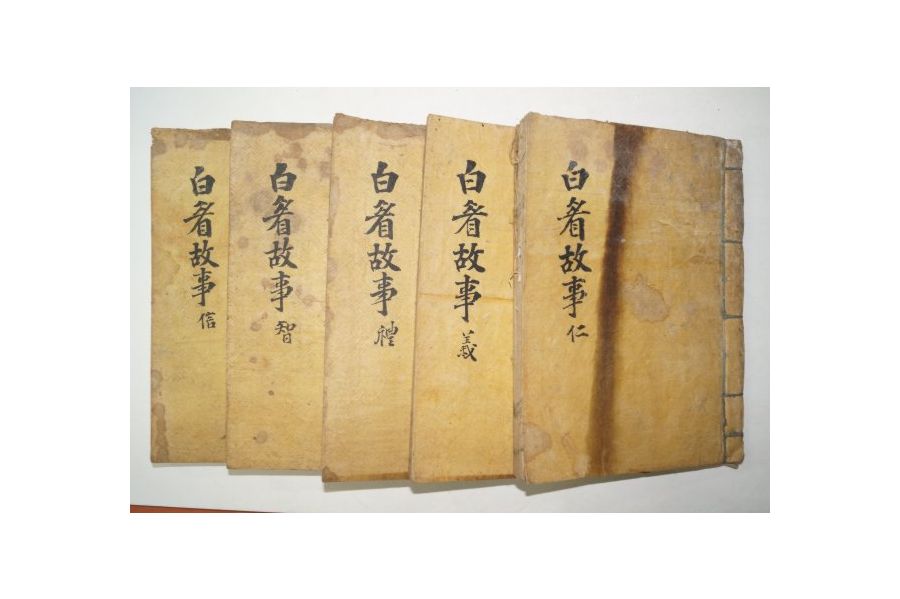 白眉故事 仁
白眉故事 義
白眉故事 禮
白眉故事 智
白眉故事 信